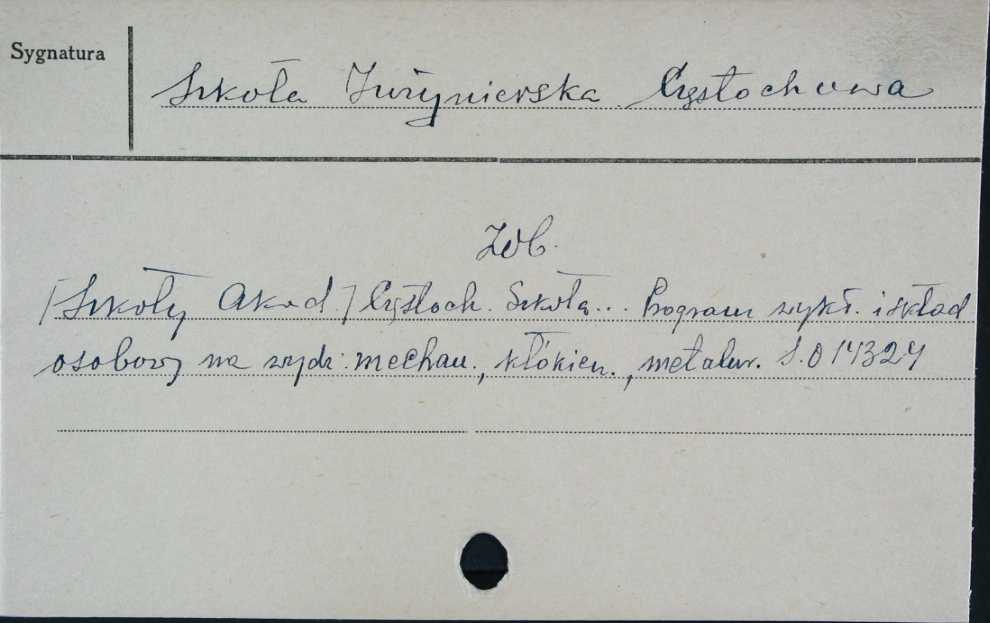 Sygnatura
Szkoła Inżynierska Częstochowa
Zob.
[Szkoły Akad.] Częstoch. Szkoła... Program wykł. i skład
osobowy na wydz. mechan., włókien., metalur. S.014324